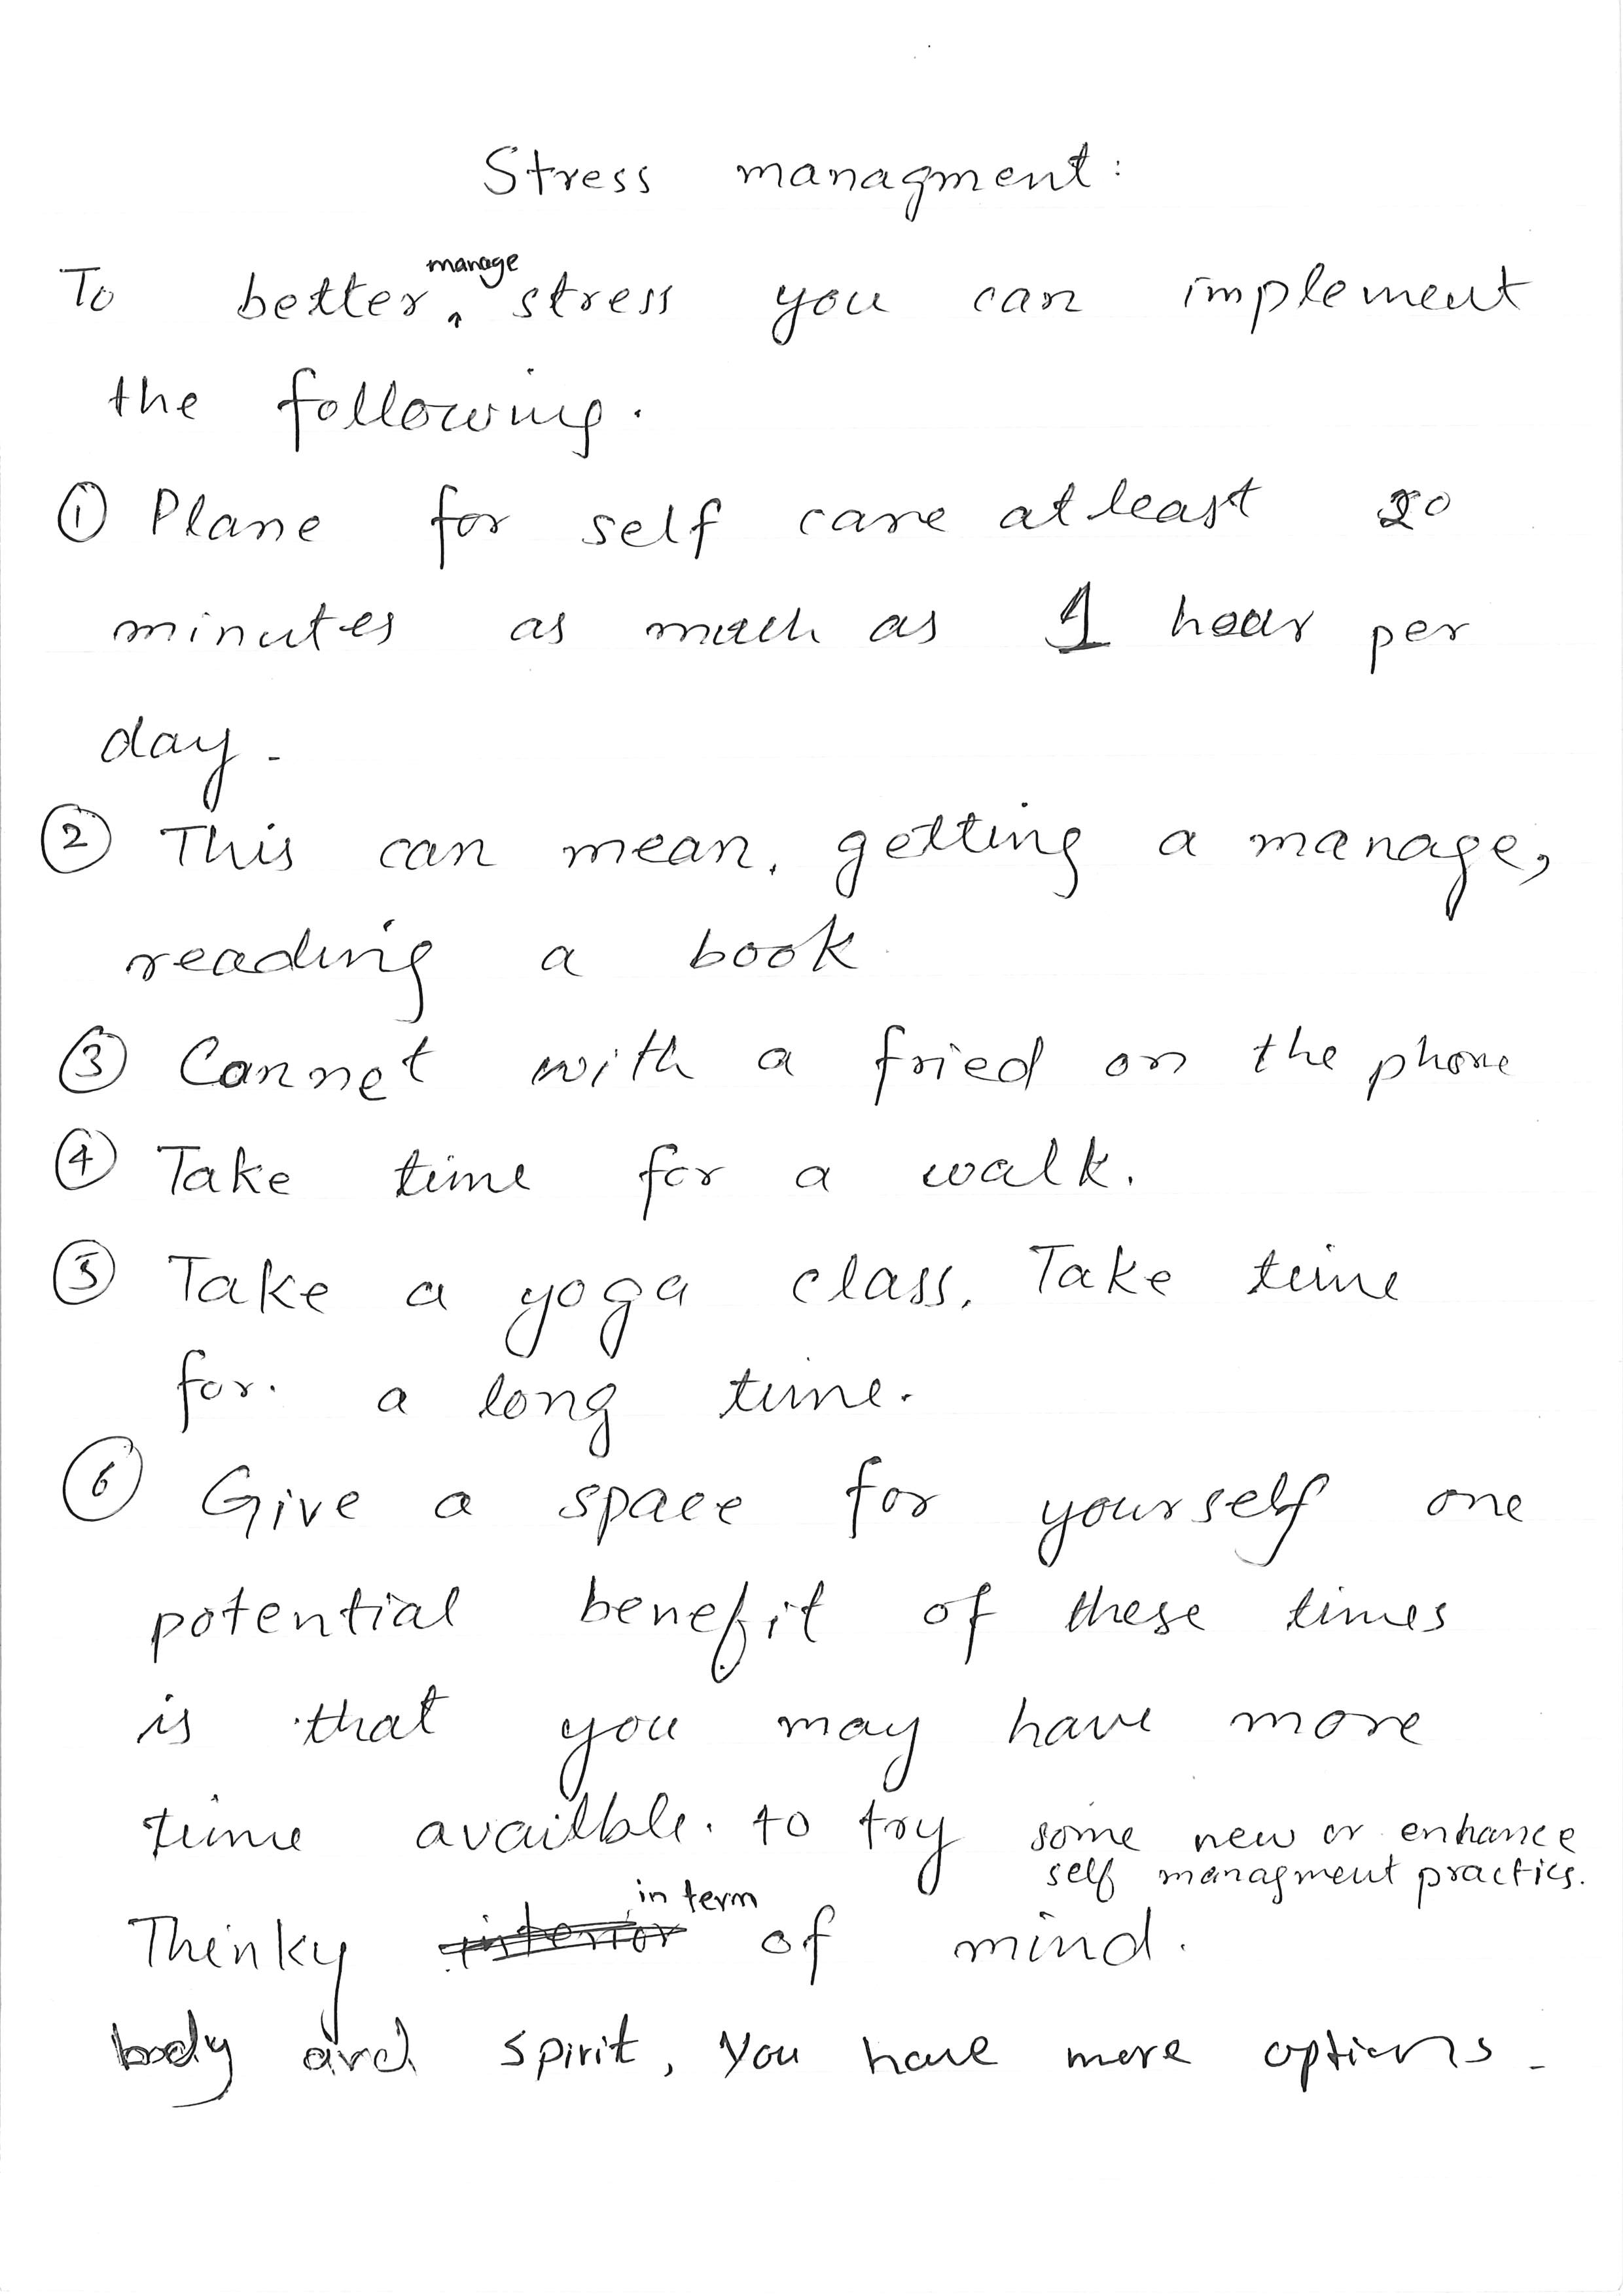 Stress managment:
To better manage stress you can implement
the following.
① Plane for self care atleast 20
minutes as much as 1 hour per
day.
② This can mean, getting a manage,
reading a book
③ Connet with a fried on the phone
④ Take time for a walk.
⑤ Take a yoga class. Take time
for. a long time.
⑥ Give a space for yourself one
potential benefit of these times
is that you may have more
time availble. to try some new or enhance
self managment practics.
Thinky in term of mind.
body and spirit, you have more options.